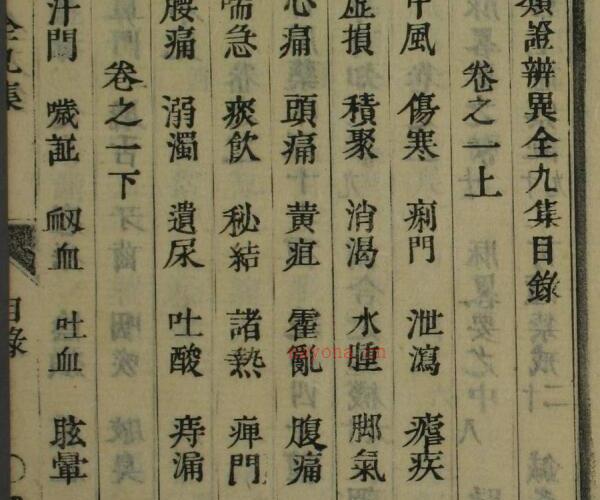 類證辨異全九集目錄
卷之一上
中風 傷寒 痢門 泄瀉 瘧疾
虛損 積聚 消渴 水腫 脚氣
心痛 頭痛 黃疸 霍亂 腹痛
喘急 痰飲 秘結 諸熱 痺門
腰痛 溺濁 遺尿 吐酸 痔漏
卷之一下
汗門 嘔证 衂血 吐血 眩暈
全九集
目錄